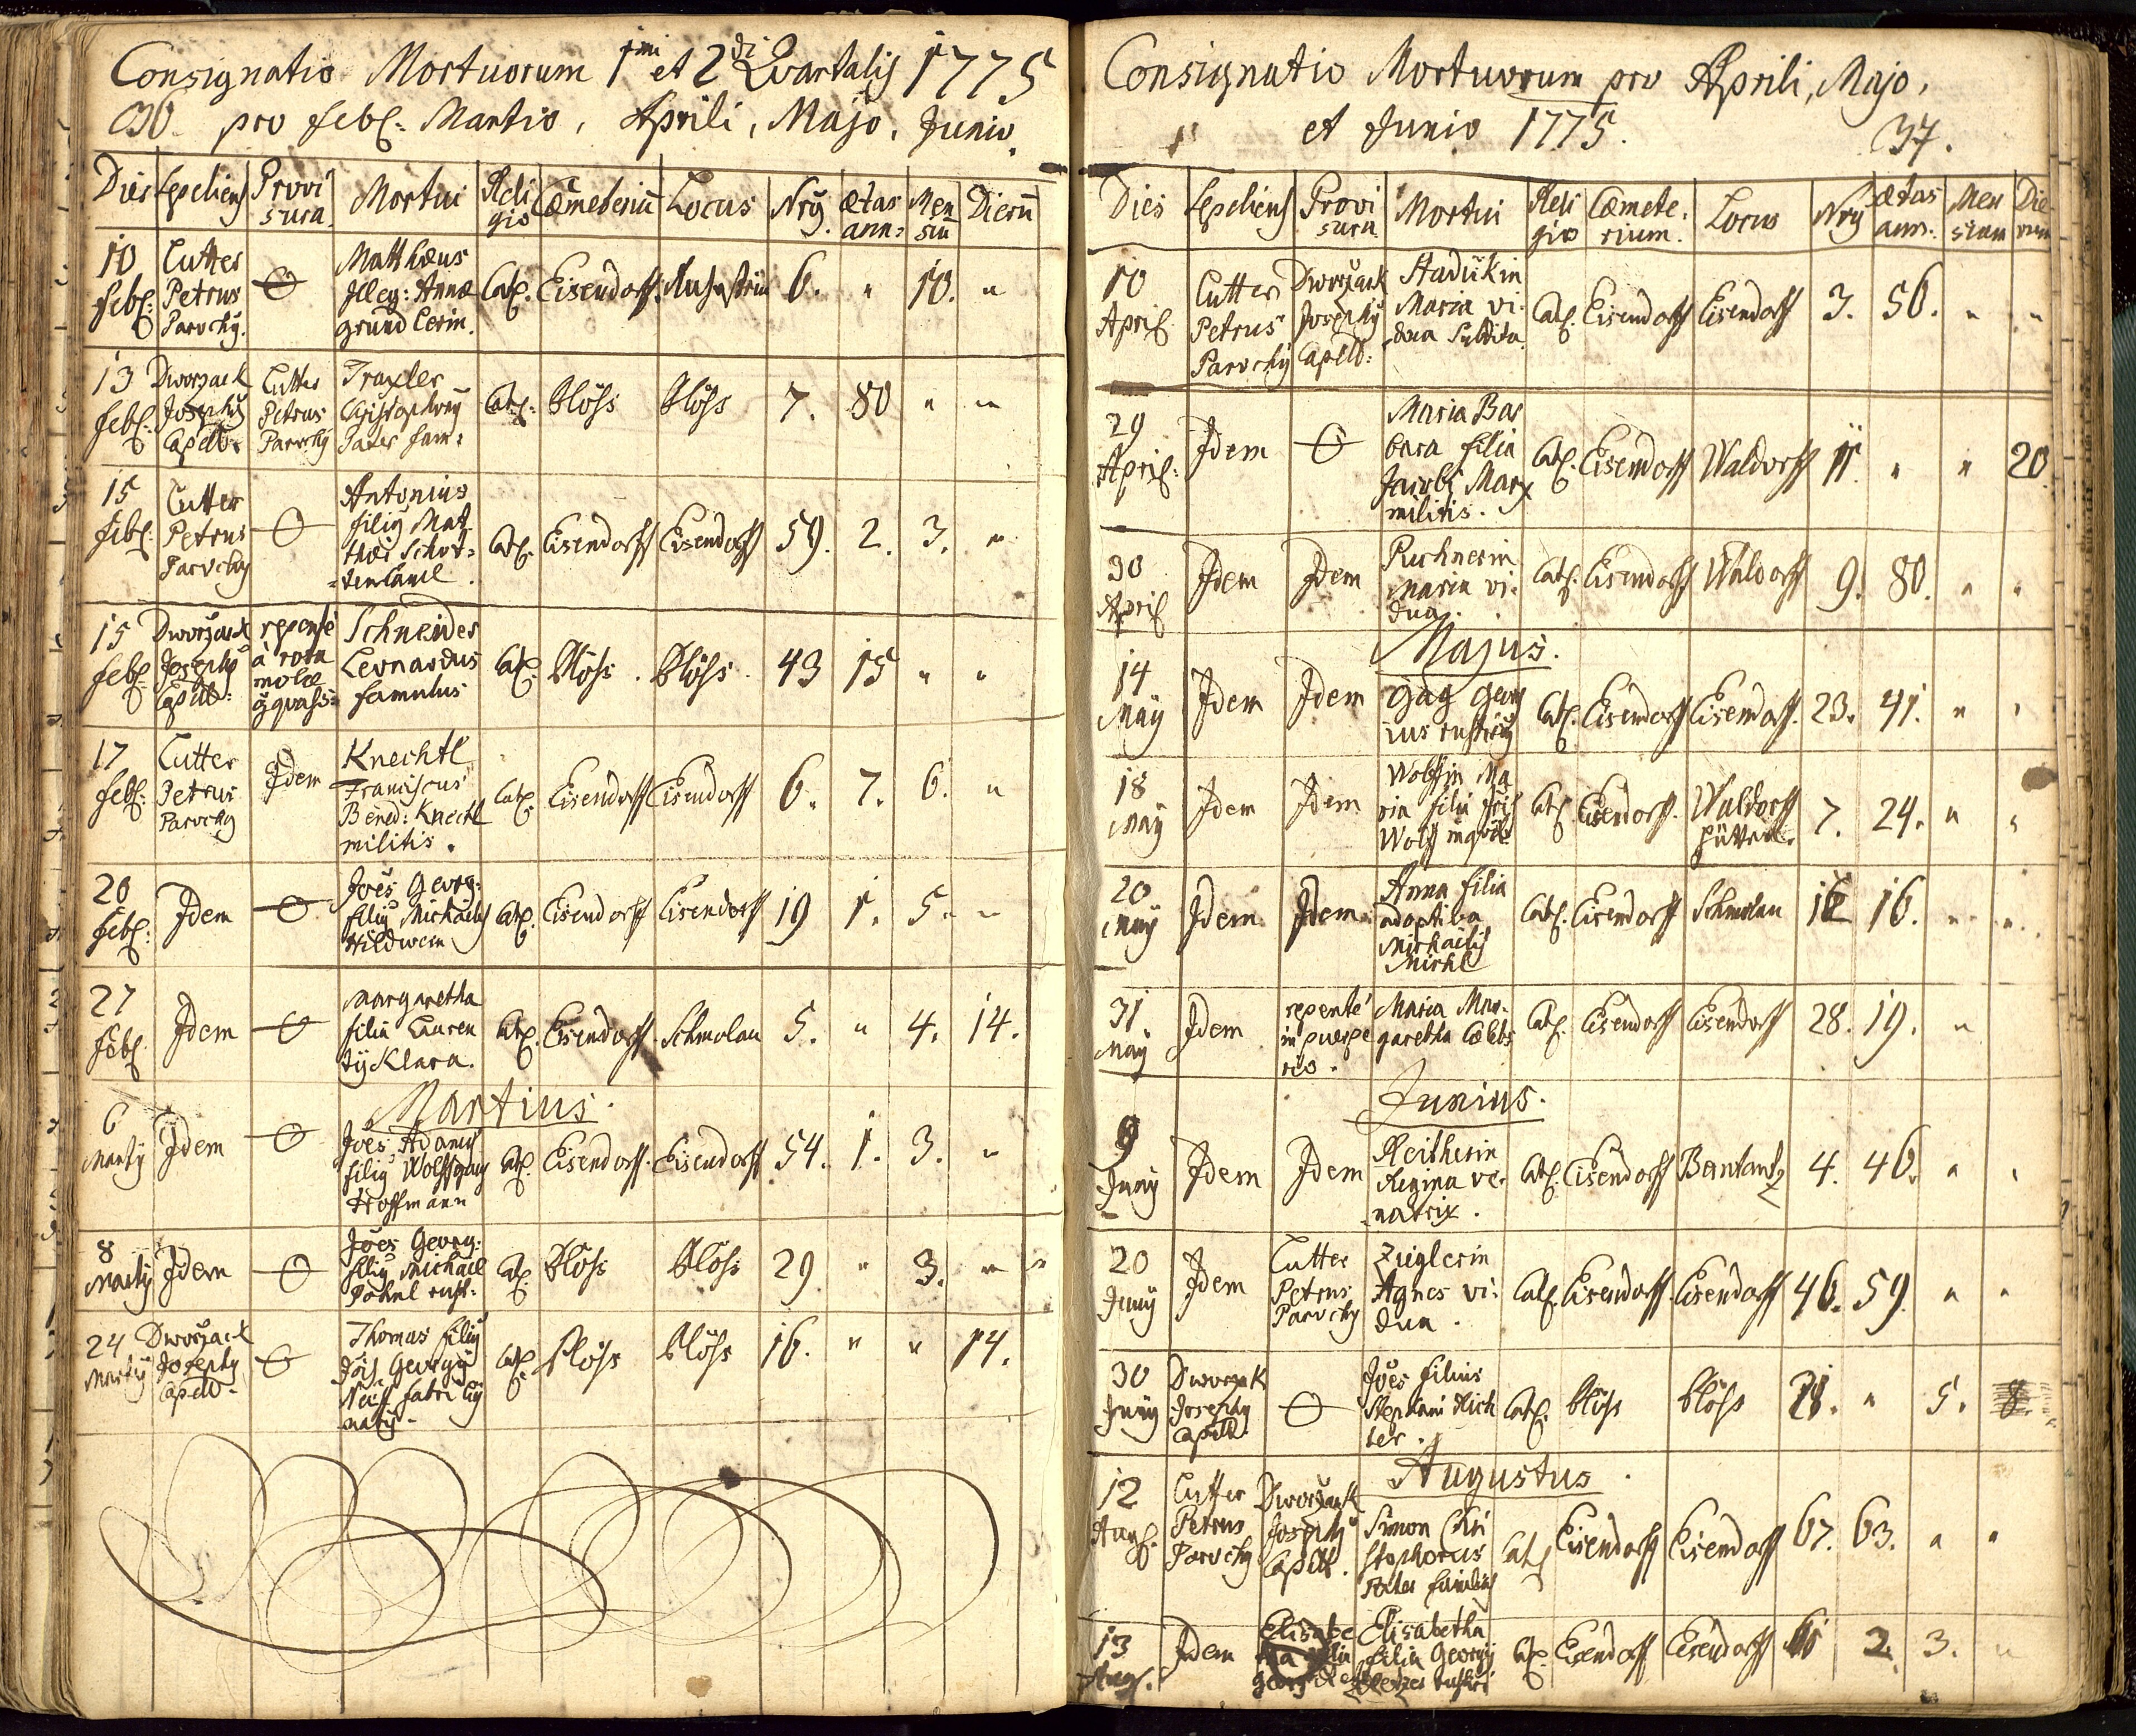 Consignatio Mortuorum 1mi et 2di Quartalis 1775
36. pro Feb: Martio, Aprili, Majo, Junio.
Dies Sepeliens Provisura Mortui Religio Cœmeteriū Locus Nrg. ætas ann: Mensiū Dierū
10 Feb: Cutter Petrus Parochg. Θ Matthæus Illeg: Annæ Cath: Eisendorff 6. " 10. "
13 Feb: Dworzack Josephg Capell: Cutter Petrus Parochg Traxler Pater fam: Cath: Plöss Plöss 7. 80 " "
15 Feb: Cutter Petrus Parochg Θ Antonius filig Matthæi Cath: Eisendorff Eisendorff 59. 2. 3. "
15 Feb: Dworzack Josephg Capell: repente à rota molæ Schneider Leonardus famulus Cath: Plöss Plöss 43 15 " "
17 Feb: Cutter Petrus Parochg Idem Knechtl Franciscus Bened: Knechtl militis. Cath: Eisendorff Eisendorff 6. 7. 6. "
20 Feb: Idem Θ Joēs Georg: filig Michaelis Hildwein Cath: Eisendorff Eisendorff 19 1. 5. "
27 Feb: Idem Θ Margaretha filia Laurentÿ Klara. Cath: Eisendorff Schmolau 5. " 4. 14.
Martius.
6 Martÿ Idem Θ Joēs Adamg filig Wolffgang Hoffmann Cath: Eisendorff Eisendorff 54. 1. 3. "
8 Martÿ Idem Θ Joēs Georg: filig Michael rust: Cath: Plöss Plöss 29 " 3. "
24 Martÿ Dworzack Josephg Capell: Θ Thomas filig Georgÿ Cath: Plöss Plöss 16. " " 14.
Consignatio Mortuorum pro Aprili, Majo,
et Junio 1775. 37.
Dies Sepeliens Provisura Mortui Religio Cœmeterium. Locus Nrg ætas ann: Mensium Dierum
10 April Cutter Petrus Parochg Dworzack Josephg Capell: Maria vidua Cath: Eisendorff Eisendorff 3. 56. " "
29 April: Idem Θ Maria Barbara filia Jacobi Marx militis. Cath: Eisendorff Waldorff 11. " " 20
30 April Idem Idem Puchnerin Maria vidua. Cath: Eisendorff Waldorff 9. 80. " "
Majus.
14 Maÿ Idem Idem Gag Georgius rusticg Cath: Eisendorff Eisendorff 23. 41. " "
18 Maÿ Idem Idem Wolfin Maria filia Wolf Cath: Eisendorff Waldorff hütten. 7. 24. " "
20 Maÿ Idem Idem Anna filia adoptiva Michaelis Michl Cath: Eisendorff Schmolau 16. " "
31 Maÿ Idem repente in puerperio. Maria Margaretha Cath: Eisendorff Eisendorff 28. 19. "
Junius.
9 Junÿ Idem Idem Reitherin Regina venatrix. Cath: Eisendorff 4. 46. " "
20 Junÿ Idem Cutter Petrus Parochg Zieglerin Agnes vidua. Cath: Eisendorff Eisendorff 46. 59. " "
30 Junÿ Dworzack Josephg Capell: Θ Joēs filius Stephani Richter. Cath: Plöss Plöss " 5.
Augustus.
12 Aug: Cutter Petrus Parochg Dworzack Josephg Capell. Simon Christophorus Pater familias Cath Eisendorff Eisendorff 67. 63. " "
13 Aug. Idem Elisabetha filia Georgÿ Cath: Eisendorff Eisendorff 2. 3. "